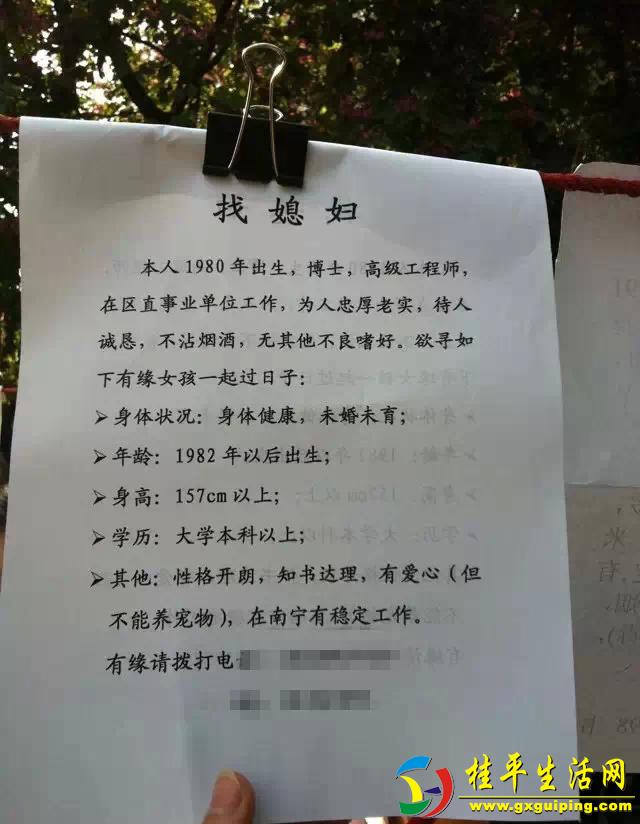 找媳妇
本人1980年出生，博士，高级工程师，
在区直事业单位工作，为人忠厚老实，待人
诚恳，不沾烟酒，无其他不良嗜好。欲寻如
下有缘女孩一起过日子：
➢身体状况：身体健康，未婚未育；
➢年龄：1982年以后出生；
➢身高：157cm以上；
➢学历：大学本科以上；
➢其他：性格开朗，知书达理，有爱心（但
不能养宠物），在南宁有稳定工作。
有缘请拨打电
桂平生活网
www.gxguiping.com